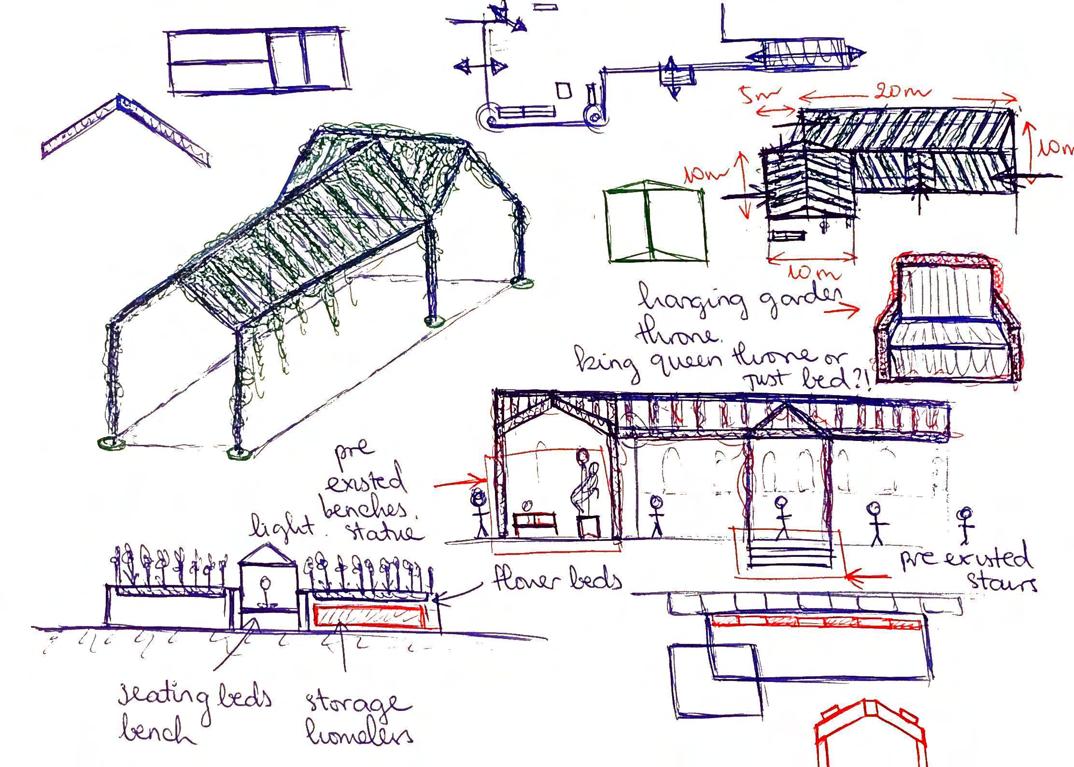 5m
20m
10m
10m
10m
hanging garden
throne.
king queen throne or
just bed?!
pre
existed
benches.
statue
light.
flower beds
pre existed
stairs
seating beds
bench
storage
homeless